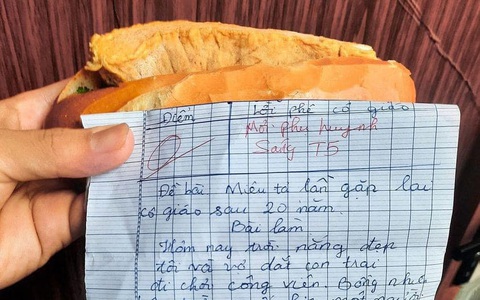 Điểm
Lời phê cô giáo
0
Mời phụ huynh
Sáng T5
Đề bài Miêu tả lần gặp lại
cô giáo sau 20 năm.
Bài làm
Hôm nay trời nắng đẹp
tôi và vợ dắt con trai
đi chơi công viên. Bỗng nhiê
một người